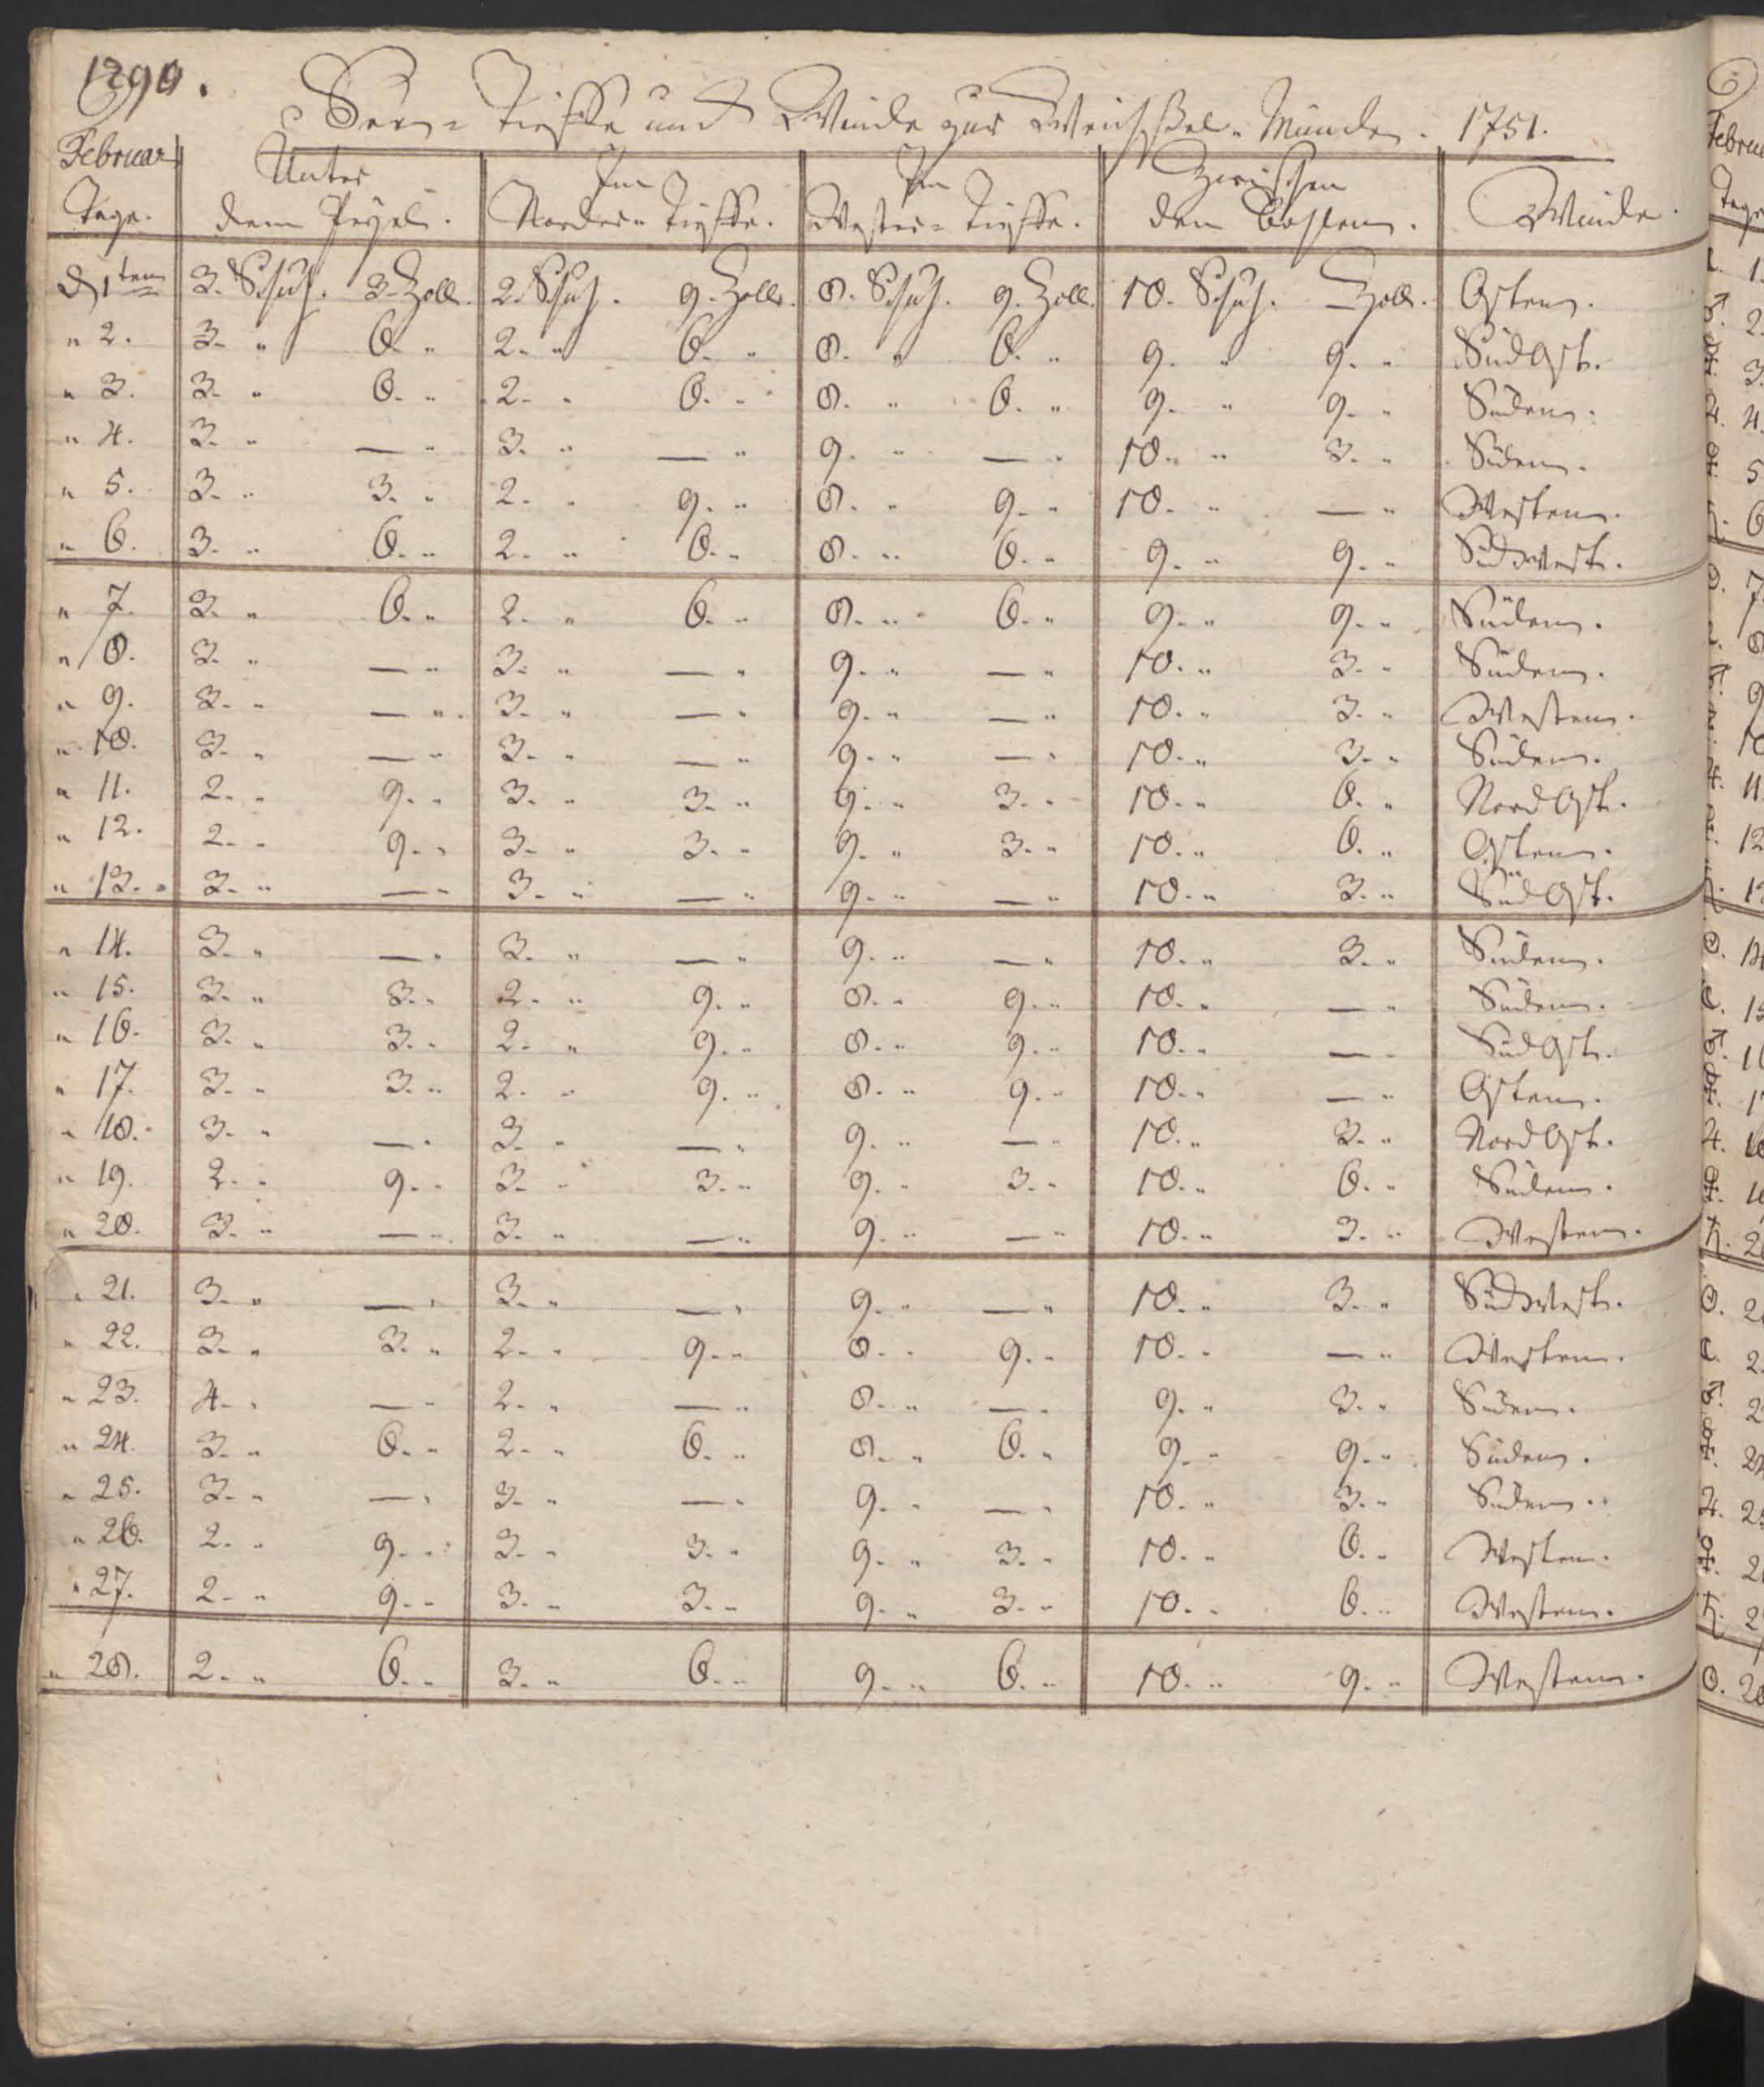 1290.
See= Tieffe und Winde zur Weichßel= Münde. 1751.
Februar Unter Im Im Zwischen
Tage. dem Pegel. Norder= Tieffe. Wester= Tieffe. den Bohlen. Winde.
d 1ten 3. Schuh. 3. Zoll. 2. Schuh. 9. Zoll. 8. Schuh. 9. Zoll. 10. Schuh. — Zoll. Osten.
" 2. 3. " 6. " 2. " 6. " 8. " 6. " 9. " 9. " SüdOst.
" 3. 3. " 6. " 2. " 6. " 8. " 6. " 9. " 9. " Süden.
" 4. 3. " — " 3. " — " 9. " — " 10. " 3. " Süden.
" 5. 3. " 3. " 2. " 9. " 8. " 9. " 10. " — " Westen.
" 6. 3. " 6. " 2. " 6. " 8. " 6. " 9. " 9. " SüdWest.
" 7. 3. " 6. " 2. " 6. " 8. " 6. " 9. " 9. " Süden.
" 8. 3. " — " 3. " — " 9. " — " 10. " 3. " Süden.
" 9. 3. " — " 3. " — " 9. " — " 10. " 3. " Westen.
" 10. 3. " — " 3. " — " 9. " — " 10. " 3. " Süden.
" 11. 2. " 9. " 3. " 3. " 9. " 3. " 10. " 6. " NordOst.
" 12. 2. " 9. " 3. " 3. " 9. " 3. " 10. " 6. " Osten.
" 13. 3. " — " 3. " — " 9. " — " 10. " 3. " SüdOst.
" 14. 3. " — " 3. " — " 9. " — " 10. " 3. " Süden.
" 15. 3. " 3. " 2. " 9. " 8. " 9. " 10. " — " Süden.
" 16. 3. " 3. " 2. " 9. " 8. " 9. " 10. " — " SüdOst.
" 17. 3. " 3. " 2. " 9. " 8. " 9. " 10. " — " Osten.
" 18. 3. " — " 3. " — " 9. " — " 10. " 3. " NordOst.
" 19. 2. " 9. " 3. " 3. " 9. " 3. " 10. " 6. " Süden.
" 20. 3. " — " 3. " — " 9. " — " 10. " 3. " Westen.
" 21. 3. " — " 3. " — " 9. " — " 10. " 3. " SüdWest.
" 22. 3. " 3. " 2. " 9. " 8. " 9. " 10. " — " Westen.
" 23. 4. " — " 2. " — " 8. " — " 9. " 3. " Süden.
" 24. 3. " 6. " 2. " 6. " 8. " 6. " 9. " 9. " Süden.
" 25. 3. " — " 3. " — " 9. " — " 10. " 3. " Süden.
" 26. 2. " 9. " 3. " 3. " 9. " 3. " 10. " 6. " Westen.
" 27. 2. " 9. " 3. " 3. " 9. " 3. " 10. " 6. " Westen.
" 28. 2. " 6. " 3. " 6. " 9. " 6. " 10. " 9. " Westen.